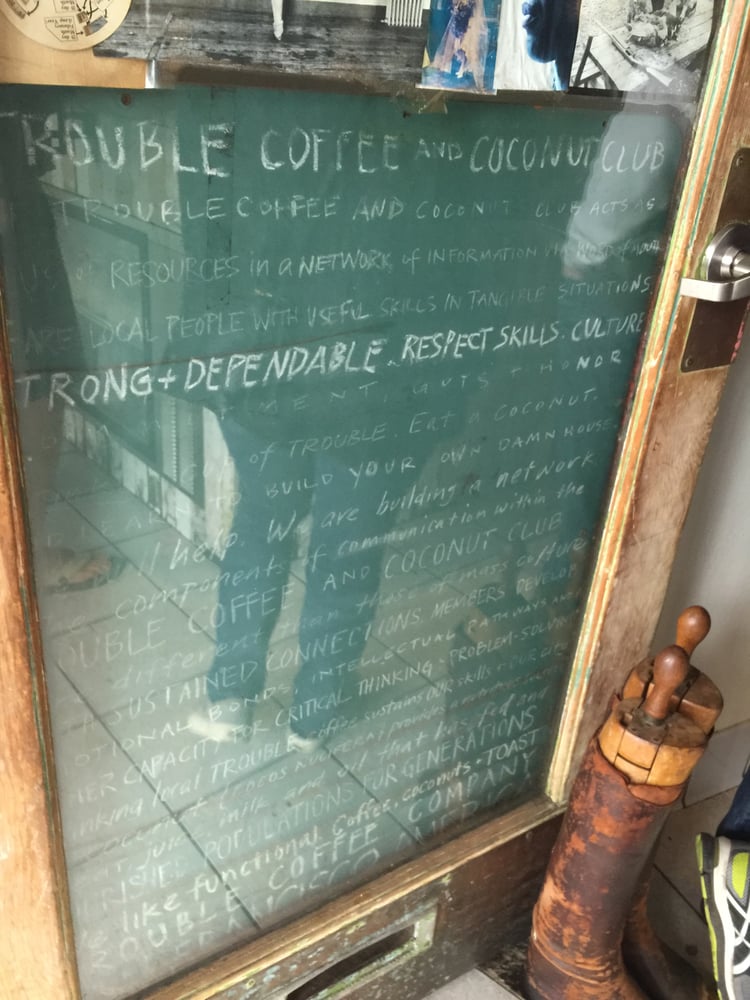 TROUBLE COFFEE AND COCONUT CLUB
TROUBLE COFFEE AND COCONUT CLUB ACTS AS
RESOURCES in a NETWORK of INFORMATION VIA WORD of mouth
ARE LOCAL PEOPLE WITH USEFUL SKILLS IN TANGIBLE SITUATIONS
TRONG + DEPENDABLE. RESPECT SKILLS. CULTURE
MENT, GUTS + HONOR
CUP of TROUBLE. Eat a COCONUT.
LEARN TO BUILD YOUR OWN DAMN HOUSE.
help. We are building a network
components of communication within the
OUBLE COFFEE AND COCONUT CLUB
different than those of mass culture
SUSTAINED CONNECTIONS MEMBERS DEVELOP
OTIONAL BONDS, INTELLECTUAL PATHWAYS AND
HER CAPACITY FOR CRITICAL THINKING + PROBLEM-SOLVING
nking local TROUBLE coffee sustains OUR skills + OUR CITY
coconut (cocos NUCIFERA) provides a
juice, milk and oil that has fed and
POPULATIONS FOR GENERATIONS
like functional coffee, coconuts + TOAST
OUBLE COFFEE COMPANY
FRANCISCO AMERICA